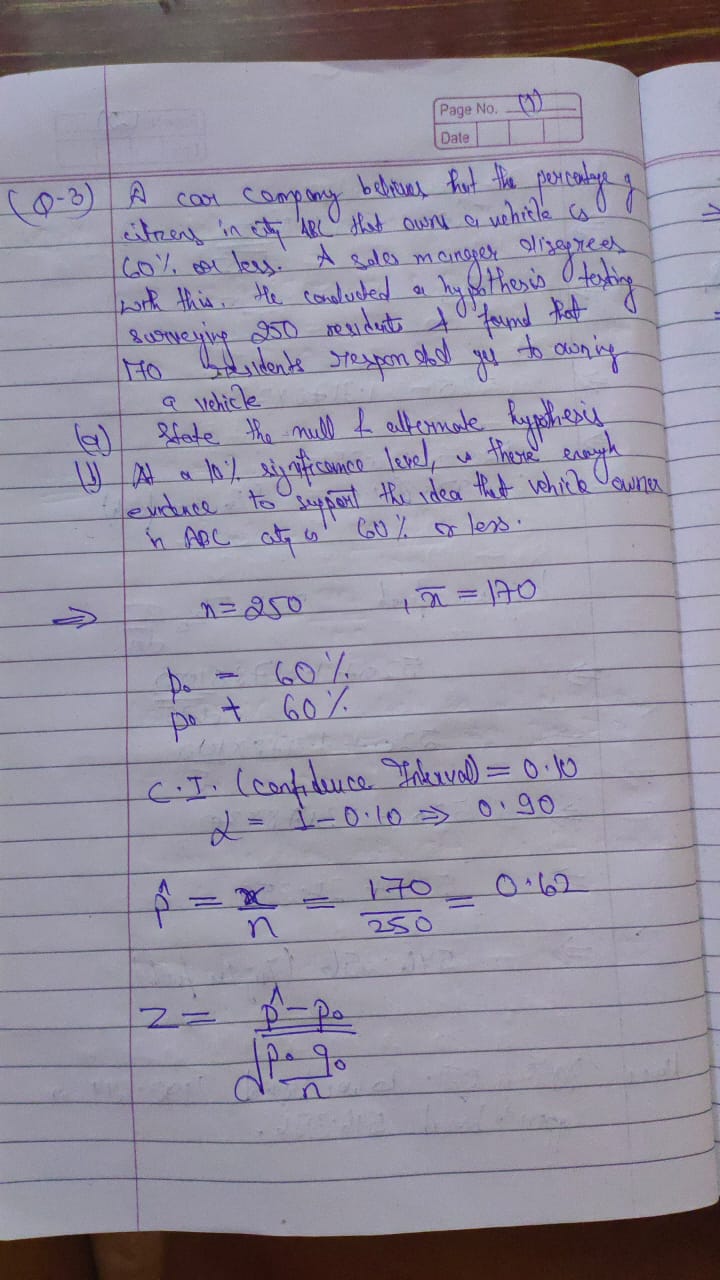 Page No. (1)
Date
(Q-3) A car company believes that the percentage of
citizens in city ABC that owns a vehicle is
60% or less. A sales manager disagrees
with this. He conducted a hypothesis testing
surveying 250 residents & found that
170 residents responded yes to owning
a vehicle
(a) State the null & alternate hypothesis
(b) At a 10% significance level, is there enough
evidence to support the idea that vehicle owner
in ABC city is 60% or less.
⇒ n = 250 , x̄ = 170
p₀ = 60%
p₀ ≠ 60%
C.I. (confidence Interval) = 0.10
α = 1 - 0.10 ⇒ 0.90
p̂ = x/n = 170/250 = 0.62
z = p̂ - p₀ / √(p₀ q₀ / n)